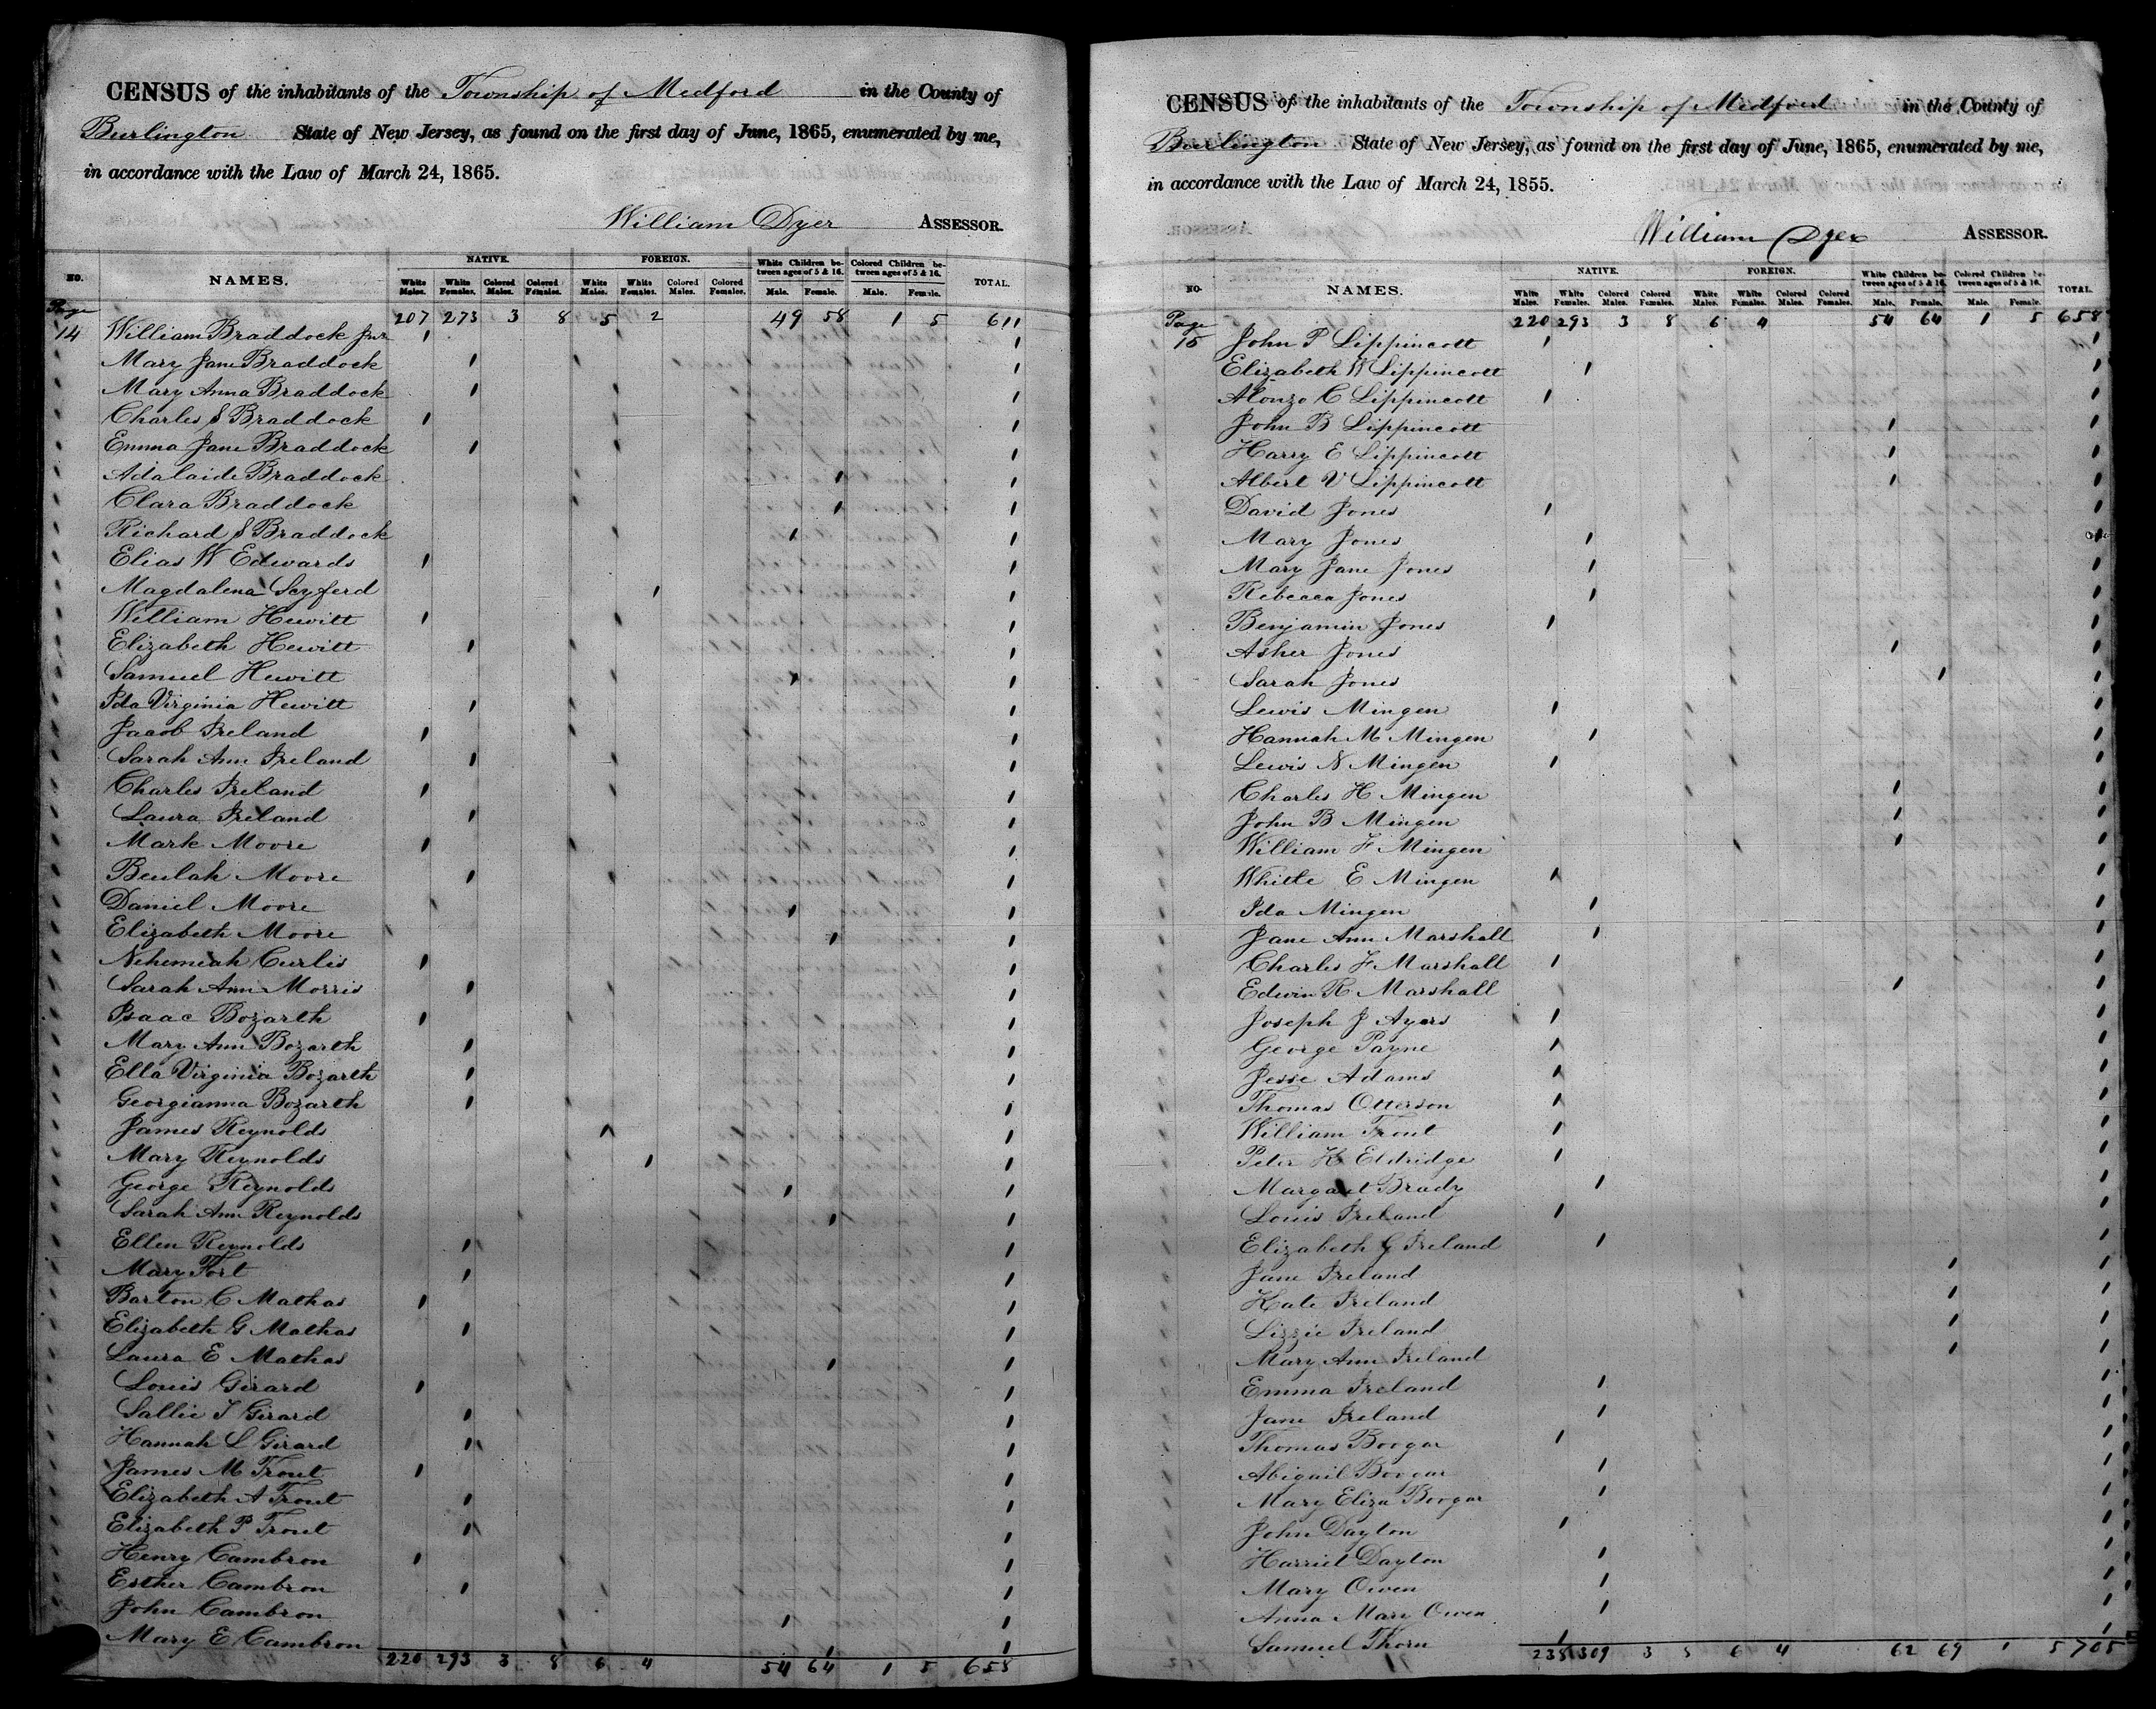 CENSUS of the inhabitants of the Township of Medford in the County of
Burlington State of New Jersey, as found on the first day of June, 1865, enumerated by me,
in accordance with the Law of March 24, 1865.
William Dyer ASSESSOR.
NO. NAMES. NATIVE. FOREIGN. White Children between ages of 5 & 16. Colored Children between ages of 5 & 16. TOTAL.
White Males. White Females. Colored Males. Colored Females. White Males. White Females. Colored Males. Colored Females. Male. Female. Male. Female.
Page 207 273 3 8 5 2 49 58 1 5 611
14 William Braddock Jnr 1 1
Mary Jane Braddock 1 1
Mary Anna Braddock 1 1
Charles S Braddock 1 1
Emma Jane Braddock 1 1
Adalaide Braddock 1 1
Clara Braddock 1 1
Richard S Braddock 1 1
Elias W Edwards 1 1
Magdalena Seyferd 1 1
William Hewitt 1 1
Elizabeth Hewitt 1 1
Samuel Hewitt 1 1
Ida Virginia Hewitt 1 1
Jacob Ireland 1 1
Sarah Ann Ireland 1 1
Charles Ireland 1 1
Laura Ireland 1 1
Mark Moore 1 1
Beulah Moore 1 1
Daniel Moore 1 1
Elizabeth Moore 1 1
Nehemiah Curlis 1 1
Sarah Ann Morris 1 1
Isaac Bozarth 1 1
Mary Ann Bozarth 1 1
Ella Virginia Bozarth 1 1
Georgianna Bozarth 1 1
James Reynolds 1 1
Mary Reynolds 1 1
George Reynolds 1 1
Sarah Ann Reynolds 1 1
Ellen Reynolds 1 1
Mary Fort 1 1
Barton C Mathas 1 1
Elizabeth G Mathas 1 1
Laura E Mathas 1 1
Louis Girard 1 1
Sallie T Girard 1 1
Hannah L Girard 1 1
James M Trout 1 1
Elizabeth A Trout 1 1
Elizabeth P Trout 1 1
Henry Cambron 1 1
Esther Cambron 1 1
John Cambron 1 1
Mary E Cambron 1 1
220 293 3 8 6 4 54 64 1 5 658
CENSUS of the inhabitants of the Township of Medford in the County of
Burlington State of New Jersey, as found on the first day of June, 1865, enumerated by me,
in accordance with the Law of March 24, 1855.
William Dyer ASSESSOR.
NO. NAMES. NATIVE. FOREIGN. White Children between ages of 5 & 16. Colored Children between ages of 5 & 16. TOTAL.
White Males. White Females. Colored Males. Colored Females. White Males. White Females. Colored Males. Colored Females. Male. Female. Male. Female.
Page 220 293 3 8 6 4 54 64 1 5 658
15 John P Lippincott 1 1
Elizabeth W Lippincott 1 1
Alonzo C Lippincott 1 1
John B Lippincott 1 1
Harry E Lippincott 1 1
Albert V Lippincott 1 1
David Jones 1 1
Mary Jones 1 1
Mary Jane Jones 1 1
Rebecca Jones 1 1
Benjamin Jones 1 1
Asher Jones 1 1
Sarah Jones 1 1
Lewis Mingen 1 1
Hannah M Mingen 1 1
Lewis N Mingen 1 1
Charles H Mingen 1 1
John B Mingen 1 1
William F Mingen 1 1
White E Mingen 1 1
Ida Mingen 1 1
Jane Ann Marshall 1 1
Charles F Marshall 1 1
Edwin R Marshall 1 1
Joseph J Ayers 1 1
George Payne 1 1
Jesse Adams 1 1
Thomas Otterson 1 1
William Trout 1 1
Peter K Eldridge 1 1
Margaret Brady 1 1
Louis Ireland 1 1
Elizabeth G Ireland 1 1
Jane Ireland 1 1
Kate Ireland 1 1
Lizzie Ireland 1 1
Mary Ann Ireland 1 1
Emma Ireland 1 1
Jane Ireland 1 1
Thomas Boogar 1 1
Abigail Boogar 1 1
Mary Eliza Boogar 1 1
John Dayton 1 1
Harriet Dayton 1 1
Mary Owen 1 1
Anna Mary Owen 1 1
Samuel Thorn 1 1
238 309 3 8 6 4 62 69 1 5 705